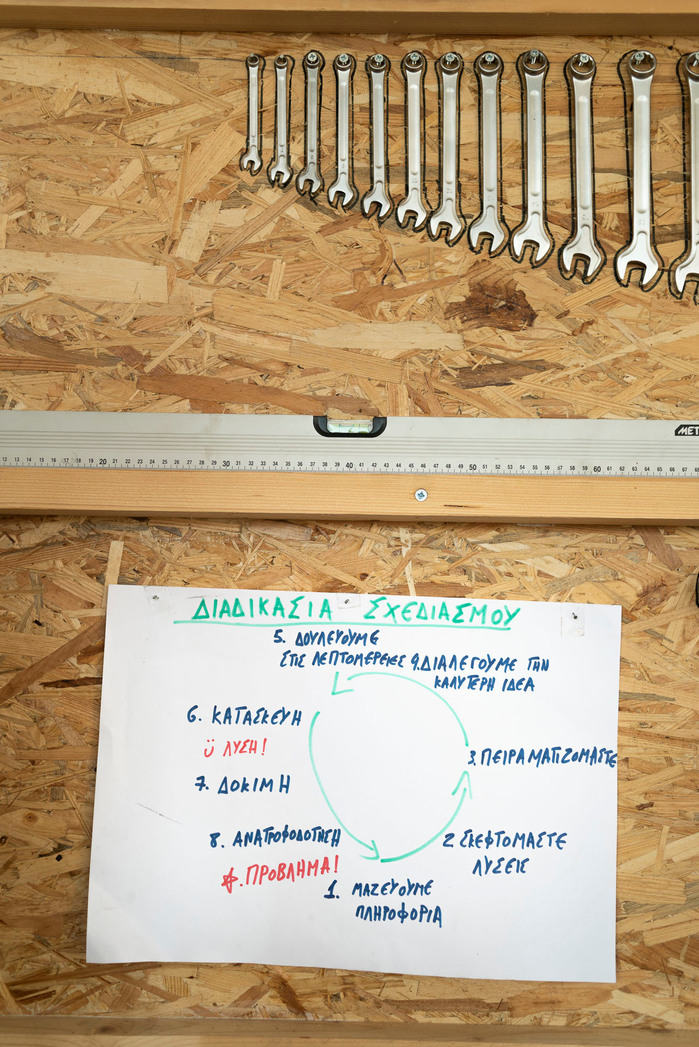 MET
20 30 40 50 60
ΔΙΑΔΙΚΑΣΙΑ ΣΧΕΔΙΑΣΜΟΥ
5. ΔΟΥΛΕΥΟΥΜΕ
ΣΤΙΣ ΛΕΠΤΟΜΕΡΕΙΕΣ
4.ΔΙΑΛΕΓΟΥΜΕ ΤΗΝ
ΚΑΛΥΤΕΡΗ ΙΔΕΑ
6. ΚΑΤΑΣΚΕΥΗ
ΛΥΣΗ!
3.ΠΕΙΡΑΜΑΤΙΖΟΜΑΣΤΕ
7. ΔΟΚΙΜΗ
8. ΑΝΑΤΡΟΦΟΔΟΤΗΣΗ
2 ΣΚΕΦΤΟΜΑΣΤΕ
ΛΥΣΕΙΣ
ΠΡΟΒΛΗΜΑ!
1. ΜΑΖΕΥΟΥΜΕ
ΠΛΗΡΟΦΟΡΙΑ